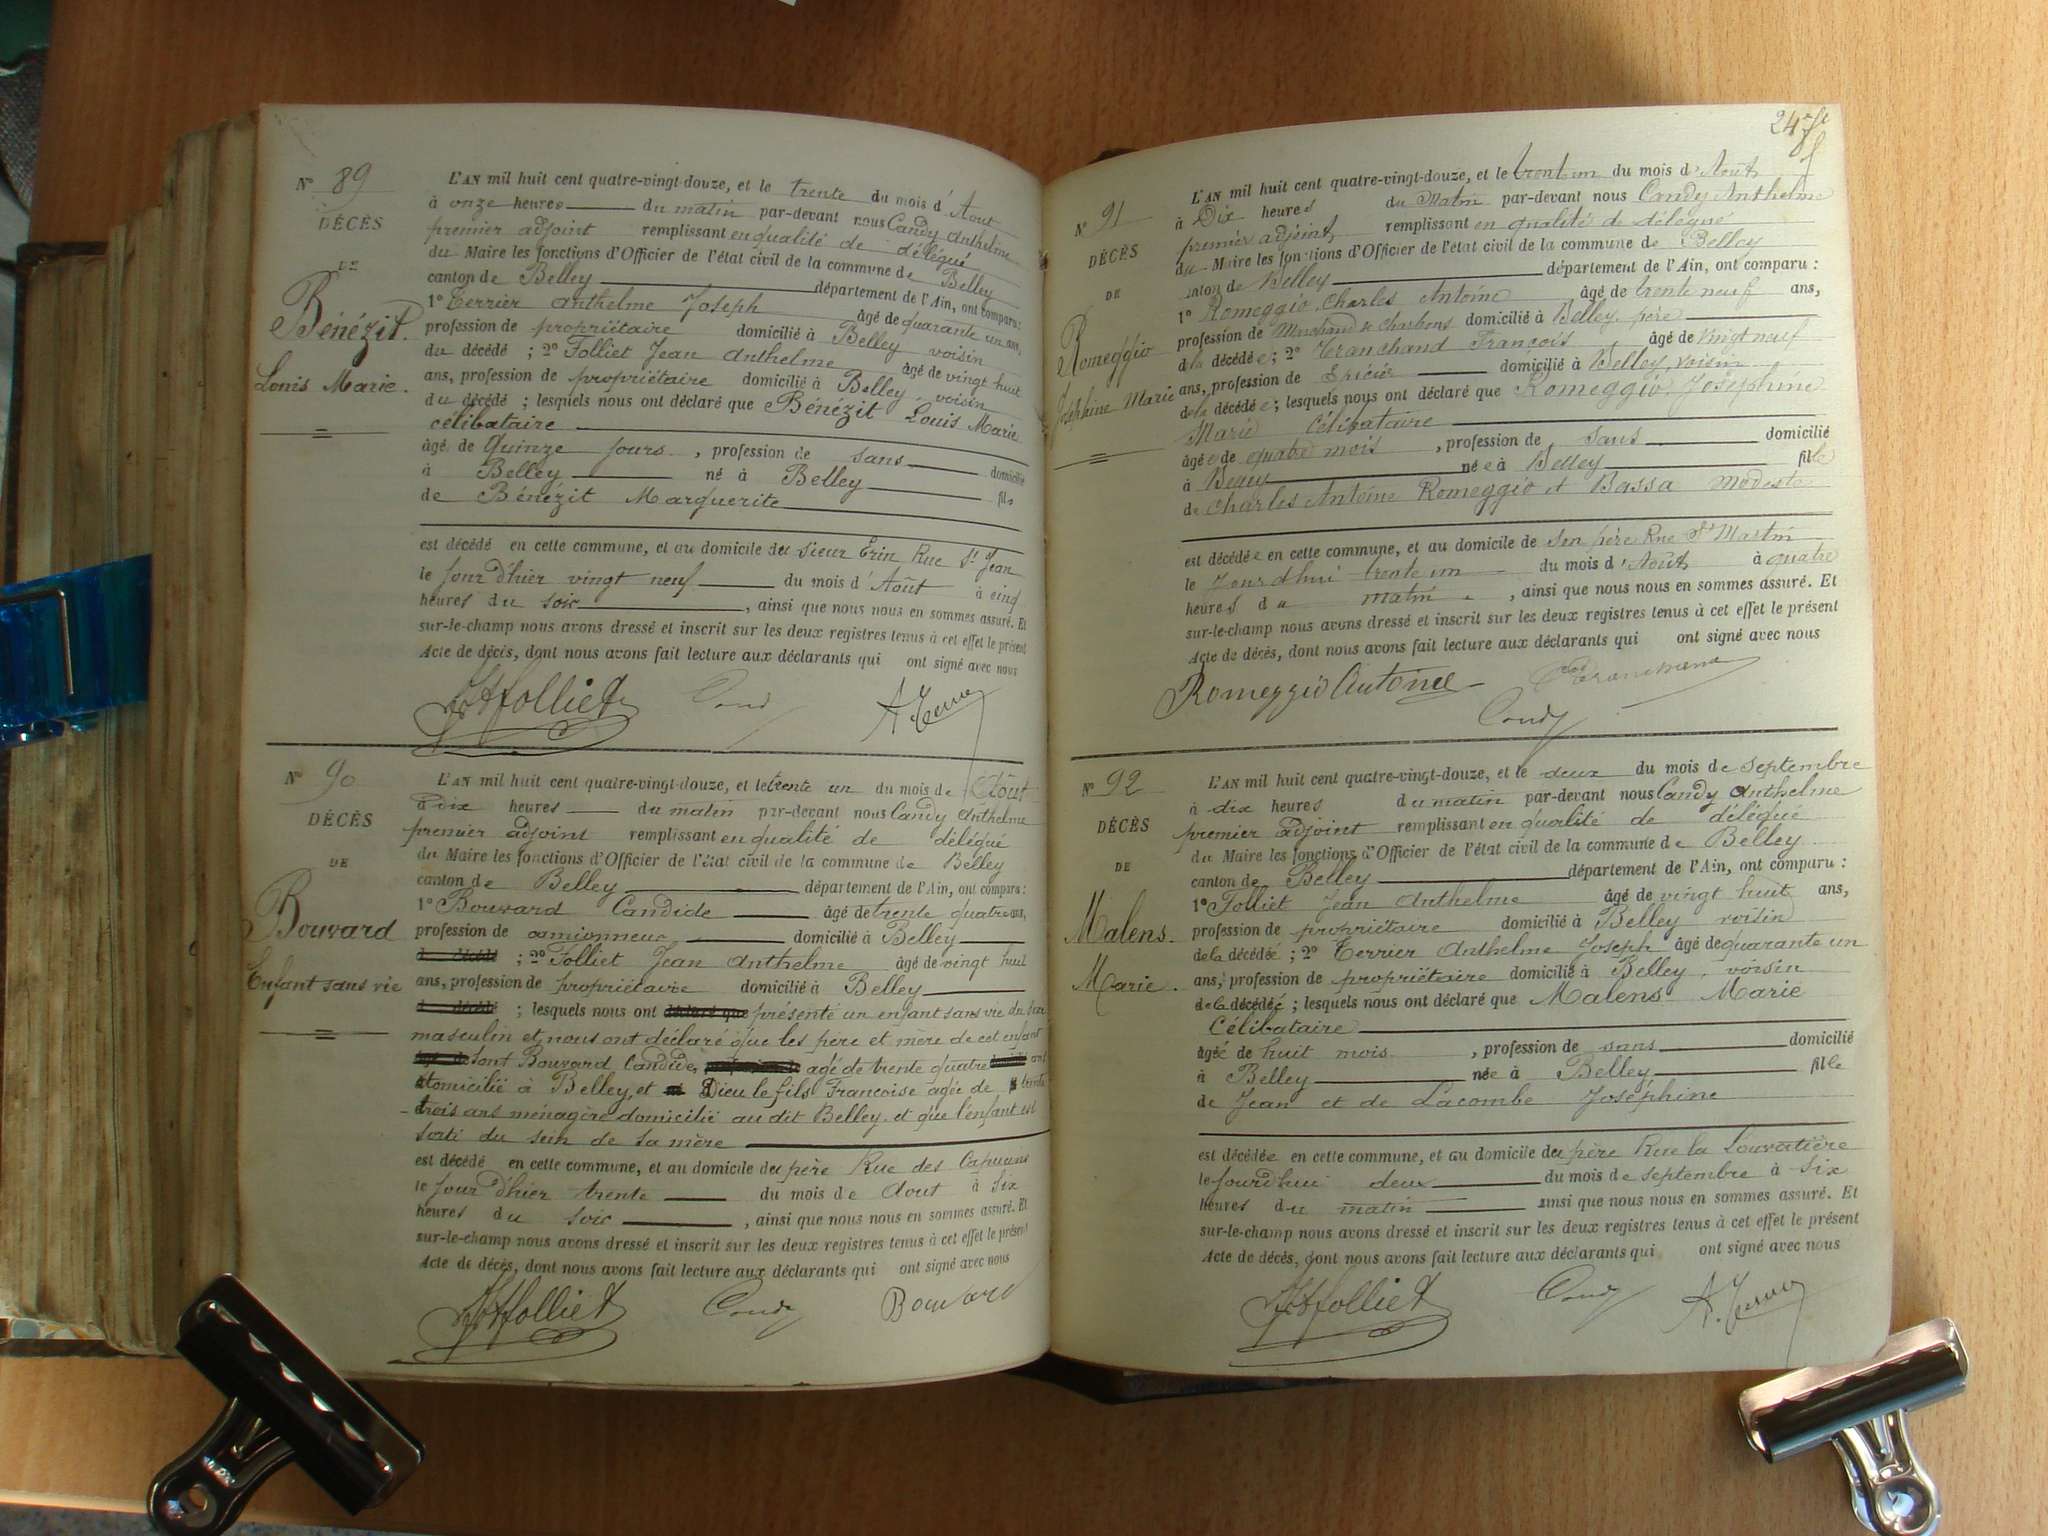 N° 89
DÉCÈS
DE
Bénézit
Louis Marie.
L'AN mil huit cent quatre-vingt-douze, et le trente du mois d'Aout
à onze heures du matin par-devant nous Candy Anthelme
premier adjoint remplissant en qualité de délégué
du Maire les fonctions d'Officier de l'état civil de la commune de Belley
canton de Belley département de l'Ain, ont comparu :
1° Terrier Anthelme Joseph âgé de quarante un ans,
profession de propriétaire domicilié à Belley voisin
du décédé ; 2° Folliet Jean Anthelme âgé de vingt huit
ans, profession de propriétaire domicilié à Belley, voisin
du décédé ; lesquels nous ont déclaré que Bénézit Louis Marie
célibataire
âgé de Quinze jours, profession de sans domicilié
à Belley né à Belley fils
de Bénézit Marguerite
est décédé en cette commune, et au domicile du sieur Erin Rue St Jean
le jour d'hier vingt neuf du mois d'Août à cinq
heures du soir, ainsi que nous nous en sommes assuré. Et
sur-le-champ nous avons dressé et inscrit sur les deux registres tenus à cet effet le présent
Acte de décès, dont nous avons fait lecture aux déclarants qui ont signé avec nous
Folliet Candy A. Terrier
N° 90
DÉCÈS
DE
Bouvard
Enfant sans vie
L'AN mil huit cent quatre-vingt-douze, et le trente un du mois de Août
à dix heures du matin par-devant nous Candy Anthelme
premier adjoint remplissant en qualité de délégué
du Maire les fonctions d'Officier de l'état civil de la commune de Belley
canton de Belley département de l'Ain, ont comparu :
1° Bouvard Candide âgé de trente quatre ans,
profession de camionneur domicilié à Belley
; 2° Folliet Jean Anthelme âgé de vingt huit
ans, profession de propriétaire domicilié à Belley
; lesquels nous ont présenté un enfant sans vie du sexe
masculin et nous ont déclaré que les père et mère de cet enfant
sont Bouvard Candide, agé de trente quatre ans
domicilié à Belley, et Dieu le fils Francoise agée de trente
trois ans ménagère domicilié au dit Belley. et que l'enfant est
sorti du sein de sa mère
est décédé en cette commune, et au domicile du père Rue des Capucins
le jour d'hier trente du mois de Aout à six
heures du soir, ainsi que nous nous en sommes assuré. Et
sur-le-champ nous avons dressé et inscrit sur les deux registres tenus à cet effet le présent
Acte de décès, dont nous avons fait lecture aux déclarants qui ont signé avec nous
Folliet Candy Bouvard
247
N° 91
DÉCÈS
DE
Romeggio
Joséphine Marie
L'AN mil huit cent quatre-vingt-douze, et le trent un du mois d'Août
à Dix heures du Matin par-devant nous Candy Anthelme
premier adjoint remplissant en qualité de délégué
du Maire les fonctions d'Officier de l'état civil de la commune de Belley
canton de Belley département de l'Ain, ont comparu :
1° Romeggio Charles Antoine âgé de trente neuf ans,
profession de Marchand de charbons domicilié à Belley, père
de la décédée ; 2° Tranchand François, âgé de vingt neuf
ans, profession de Epicier domicilié à Belley, voisin
de la décédée ; lesquels nous ont déclaré que Romeggio Joséphine
Marie Célibataire
âgée de quatre mois, profession de sans domicilié
à Belley née à Belley fille
de Charles Antoine Romeggio et Bassa Modeste
est décédée en cette commune, et au domicile de son père Rue St Martin
le Jourd'hui trente un du mois d'Août à quatre
heures du matin, ainsi que nous nous en sommes assuré. Et
sur-le-champ nous avons dressé et inscrit sur les deux registres tenus à cet effet le présent
Acte de décès, dont nous avons fait lecture aux déclarants qui ont signé avec nous
Romeggio Antoine Tranchand
Candy
N° 92
DÉCÈS
DE
Malens.
Marie.
L'AN mil huit cent quatre-vingt-douze, et le deux du mois de septembre
à dix heures du matin par-devant nous Candy Anthelme
premier adjoint remplissant en qualité de délégué
du Maire les fonctions d'Officier de l'état civil de la commune de Belley
canton de Belley département de l'Ain, ont comparu :
1° Folliet Jean Anthelme âgé de vingt huit ans,
profession de propriétaire domicilié à Belley voisin
de la décédée ; 2° Terrier Anthelme Joseph âgé de quarante un
ans, profession de propriétaire domicilié à Belley, voisin
de la décédée ; lesquels nous ont déclaré que Malens Marie
Célibataire
âgée de huit mois, profession de sans domicilié
à Belley née à Belley fille
de Jean et de Lacombe Joséphine
est décédée en cette commune, et au domicile du père Rue la Louvatière
le jourd'hui deux du mois de septembre à six
heures du matin ainsi que nous nous en sommes assuré. Et
sur-le-champ nous avons dressé et inscrit sur les deux registres tenus à cet effet le présent
Acte de décès, dont nous avons fait lecture aux déclarants qui ont signé avec nous
Folliet Candy A. Terrier